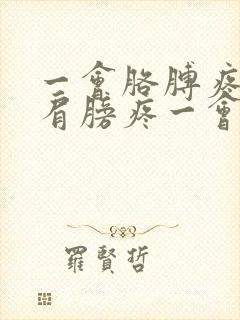 一會胳膊疼
肩膀疼一會
羅賢哲